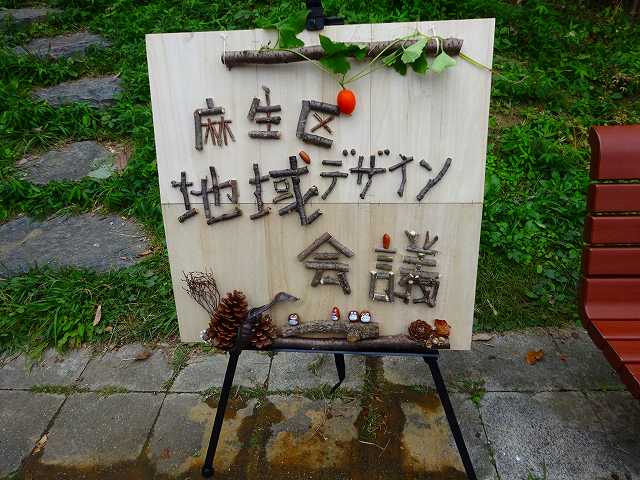 麻生区
地域デザイン
会議